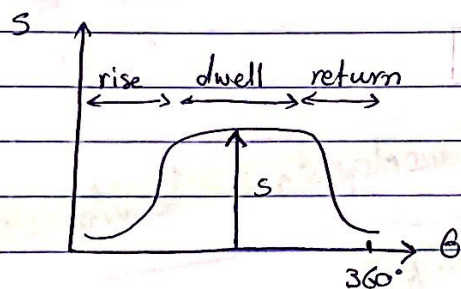 S
rise dwell return
s
θ
360°